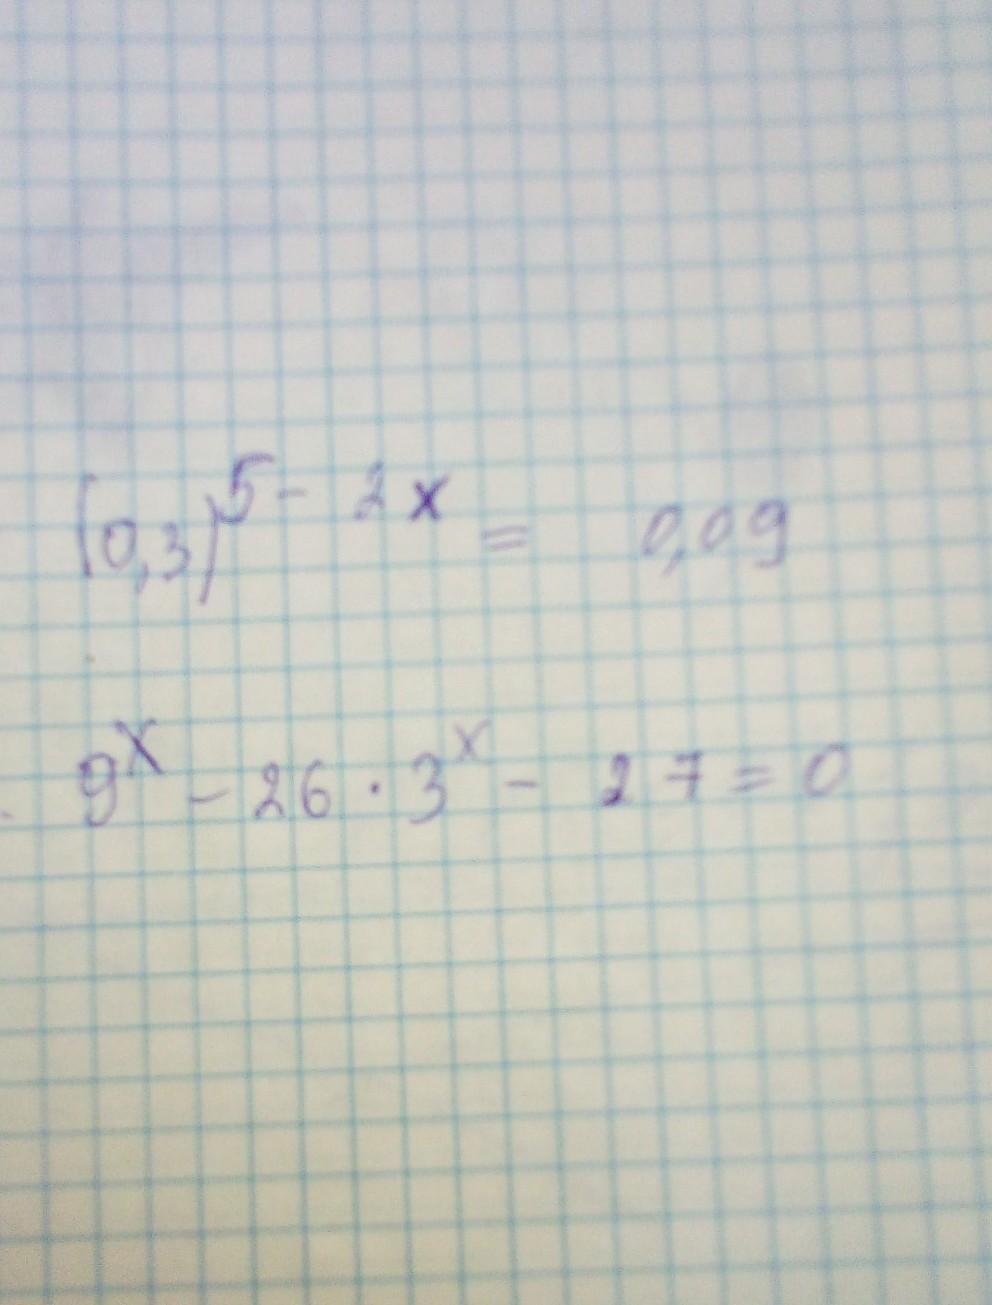 (0,3)^5-2x = 0,09
9^x - 26 · 3^x - 27 = 0